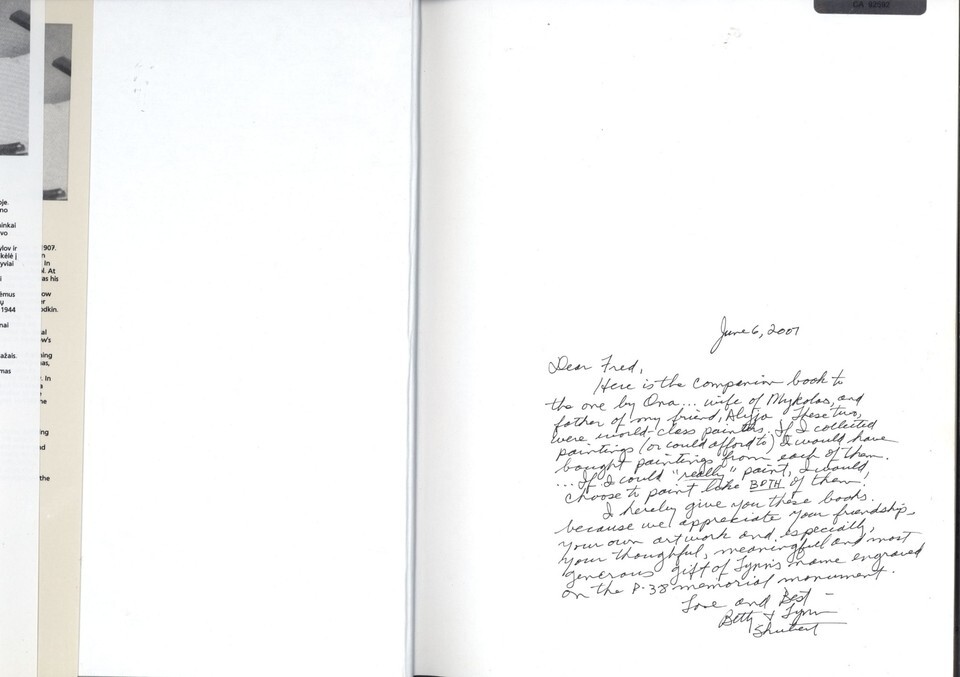 oje.
no
inkai
vo
ylov ir
kėlė į
yviai
i
ėmus
ų
1944
nai
ažais.
mas
1907.
n
In
l. At
as his
ow
er
odkin.
al
w's
ning
as,
. In
a
y
he
ng
d
the
GA 82582
June 6, 2007
Dear Fred,
Here is the companion book to
the one by Ona... wife of Mykolas, and
father of my friend, Alyja. These two,
were world-class painters. If I collected
paintings (or could afford to) I would have
bought paintings from each of them.
... If I could "really" paint, I would,
choose to paint like BOTH of them!
I hereby give you these books.
because we appreciate your friendship,
your own art work and especially,
your thoughtful, meaningful and most
generous gift of Lynn's name engraved
on the P-38 memorial monument.
Love and Best –
Betty & Lynn
Shubert